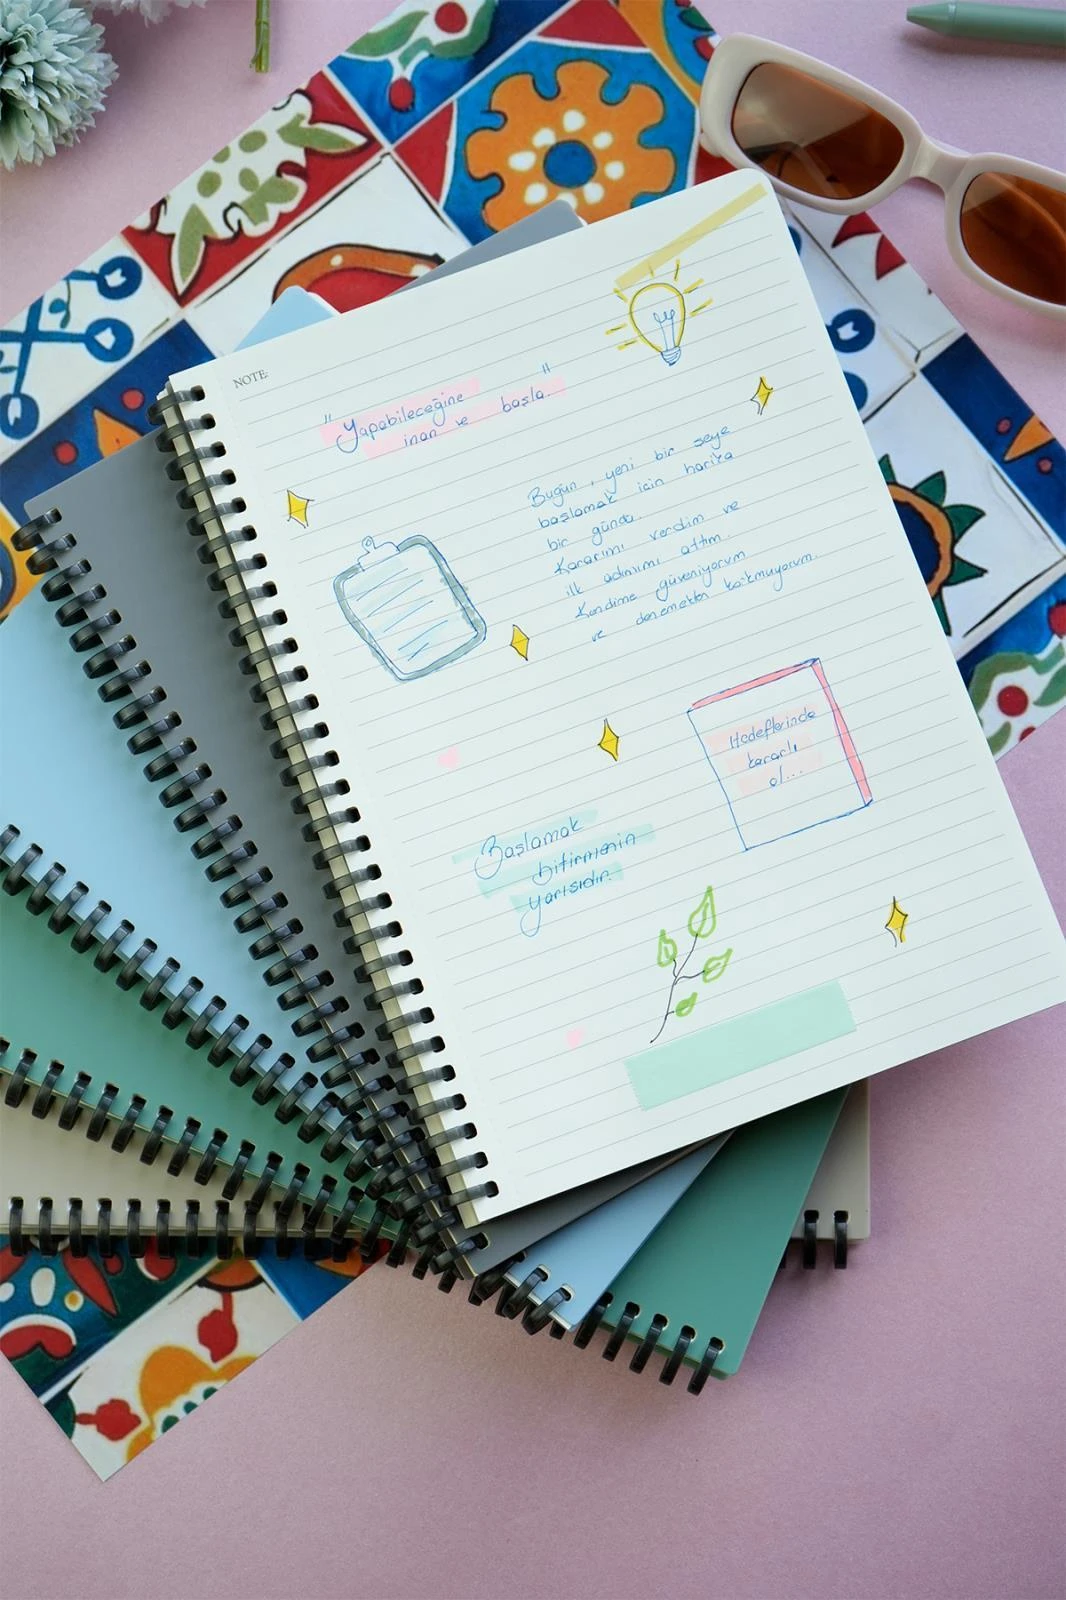 NOTE:
"Yapabileceğine
inan ve başla."
Bugün, yeni bir şeye
başlamak için harika
bir gündü.
Kararımı verdim ve
ilk adımımı attım.
Kendime güveniyorum
ve denemekten korkmuyorum.
Hedeflerinde
kararlı
ol...
Başlamak
bitirmenin
yarısıdır.